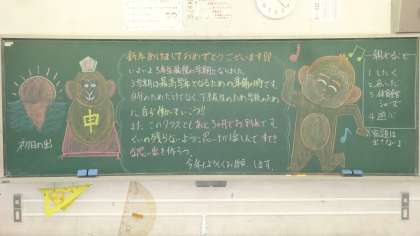 新年あけましておめでとうございます!!
いよいよ5年生最後の学期となりました。
3学期は最高学年となるための準備の時です。
自分のためだけでなく、下級生のため学校のため
に、自ら働いていこう!!
また、このクラスともあと3ヶ月でお別れです。
くいの残らないように思い切り遊んで すてき
な思い出を作ろう。
今年もよろしくお願いします。
初日の出
申
朝やること
1.したく
3.体育館
シューズ
4.遊ぶ